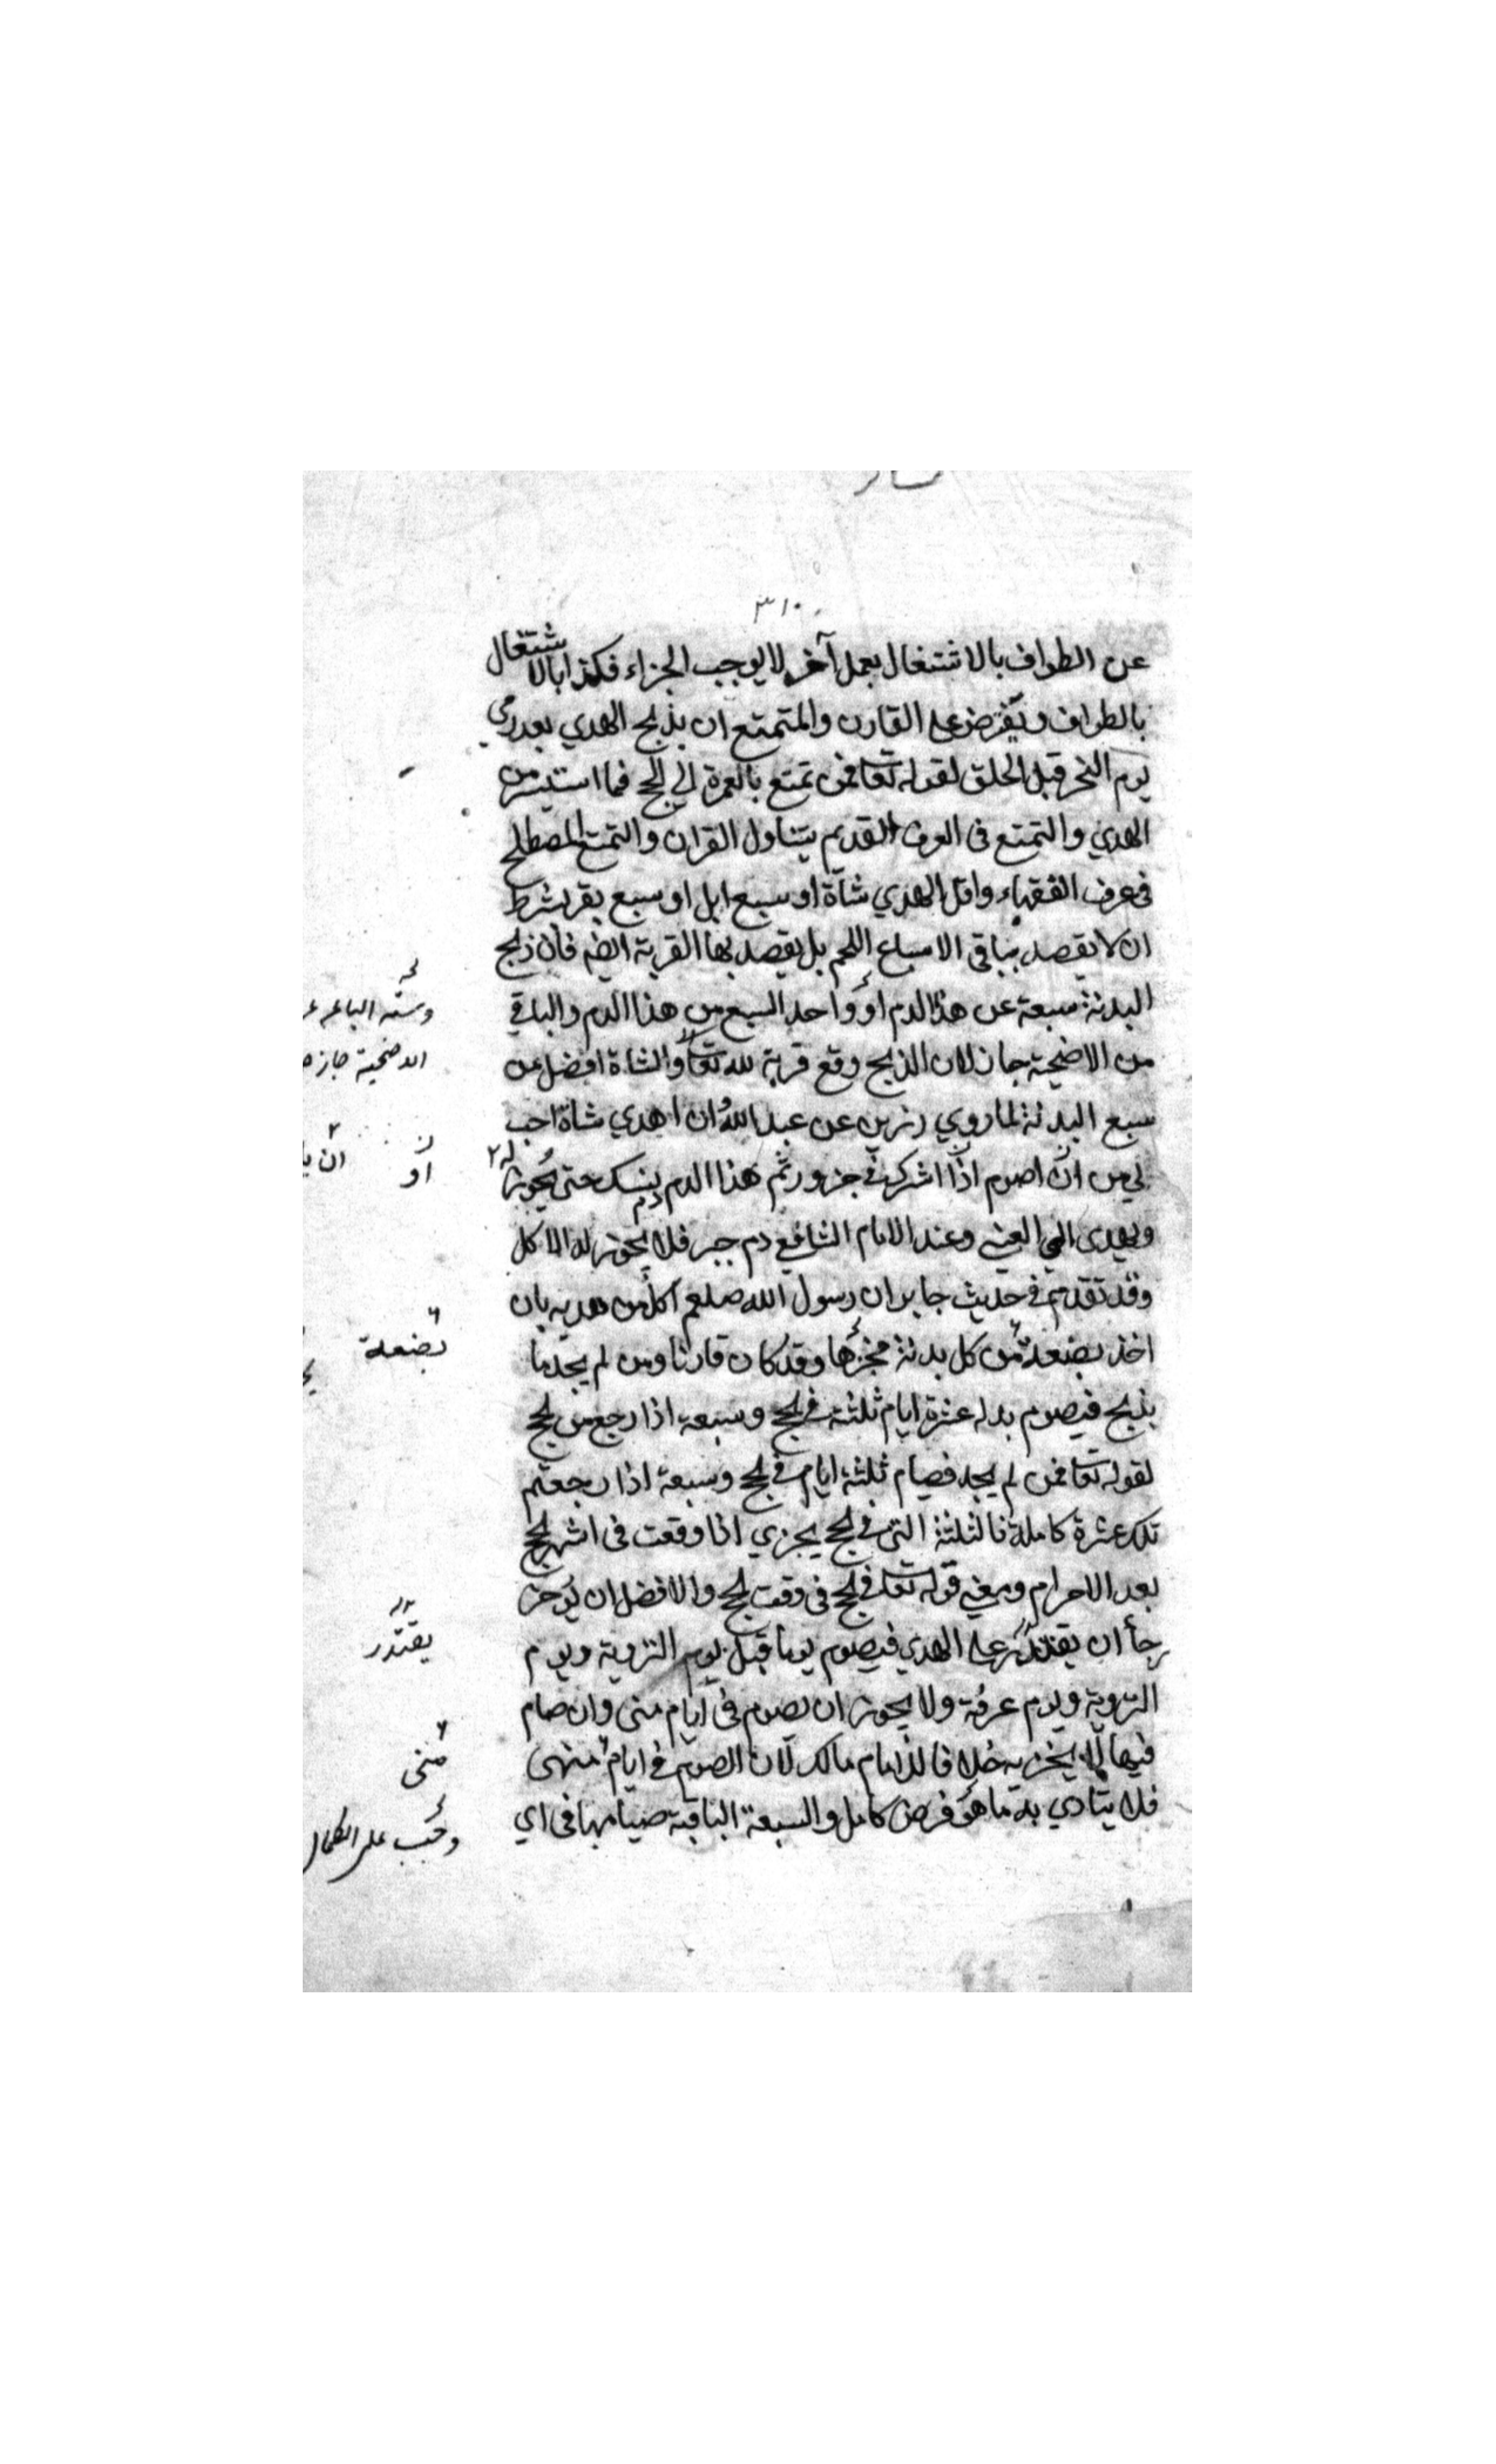 ٣١٠
عن الطواف بالاشتغال بعمل آخر لا يوجب الجزاء فكذا بالاشتغال
بالطواف ويفترض على القارن والمتمتع ان يذبح الهدي بعد رمي
يوم النحر قبل الحلق لقوله تعا فمن تمتع بالعمرة الى الحج فما استيسر من
الهدي والتمتع فى العرف القديم يتناول القران والتمتع المصطلح
فى عرف الفقهاء واقل الهدي شاة او سبع ابل او سبع بقر بشرط
ان لا يقصد بباقي الاسباع اللحم بل يقصد بها القربة ايضا فان ذبح
البدنة سبعة عن هذا الدم او واحد السبع من هذا الدم والباقي
من الاضحية جاز لان الذبح وقع قربة لله تعالى والشاة افضل من
سبع البدنة لما روي رزين عن عبد الله ان اهدي شاة احب
لي من ان اصوم اذا اشرك في جزور ثم هذا الدم دم نسك حتى يجوز له
ويهدى الى الغني وعند الامام الشافعي دم جبر فلا يجوز له الاكل
وقد تقدم في حديث جابر ان رسول الله صلعم اكل من هديه بان
اخذ بضعة من كل بدنة نحرها وقد كان قارنا ومن لم يجد ما
يذبح فيصوم بدله عشرة ايام ثلثة في الحج وسبعة اذا رجع من لحج
لقوله تعا فمن لم يجد فصيام ثلثة ايام في لحج وسبعة اذا رجعتم
تلك عشرة كاملة فالثلثة التي في لحج يجزي اذا وقعت فى اشهر لحج
بعد الاحرام ومعنى قوله تعا في لحج فى وقت لحج والافضل ان يؤخر
رجأ ان يقتدر على الهدي فيصوم يوما قبل يوم التروية ويوم
التروية ويوم عرفة ولا يجوز ان يصوم فى ايام منى وان صام
فيها لا يجزيه خلافا للامام مالك لان الصوم في ايام منهى
فلا يتادي به ما هو فرض كامل والسبعة الباقية صيامها فى اي
الاضحية جاز
او
ان
بضعة
يقتدر
منى
وجب على الكمال